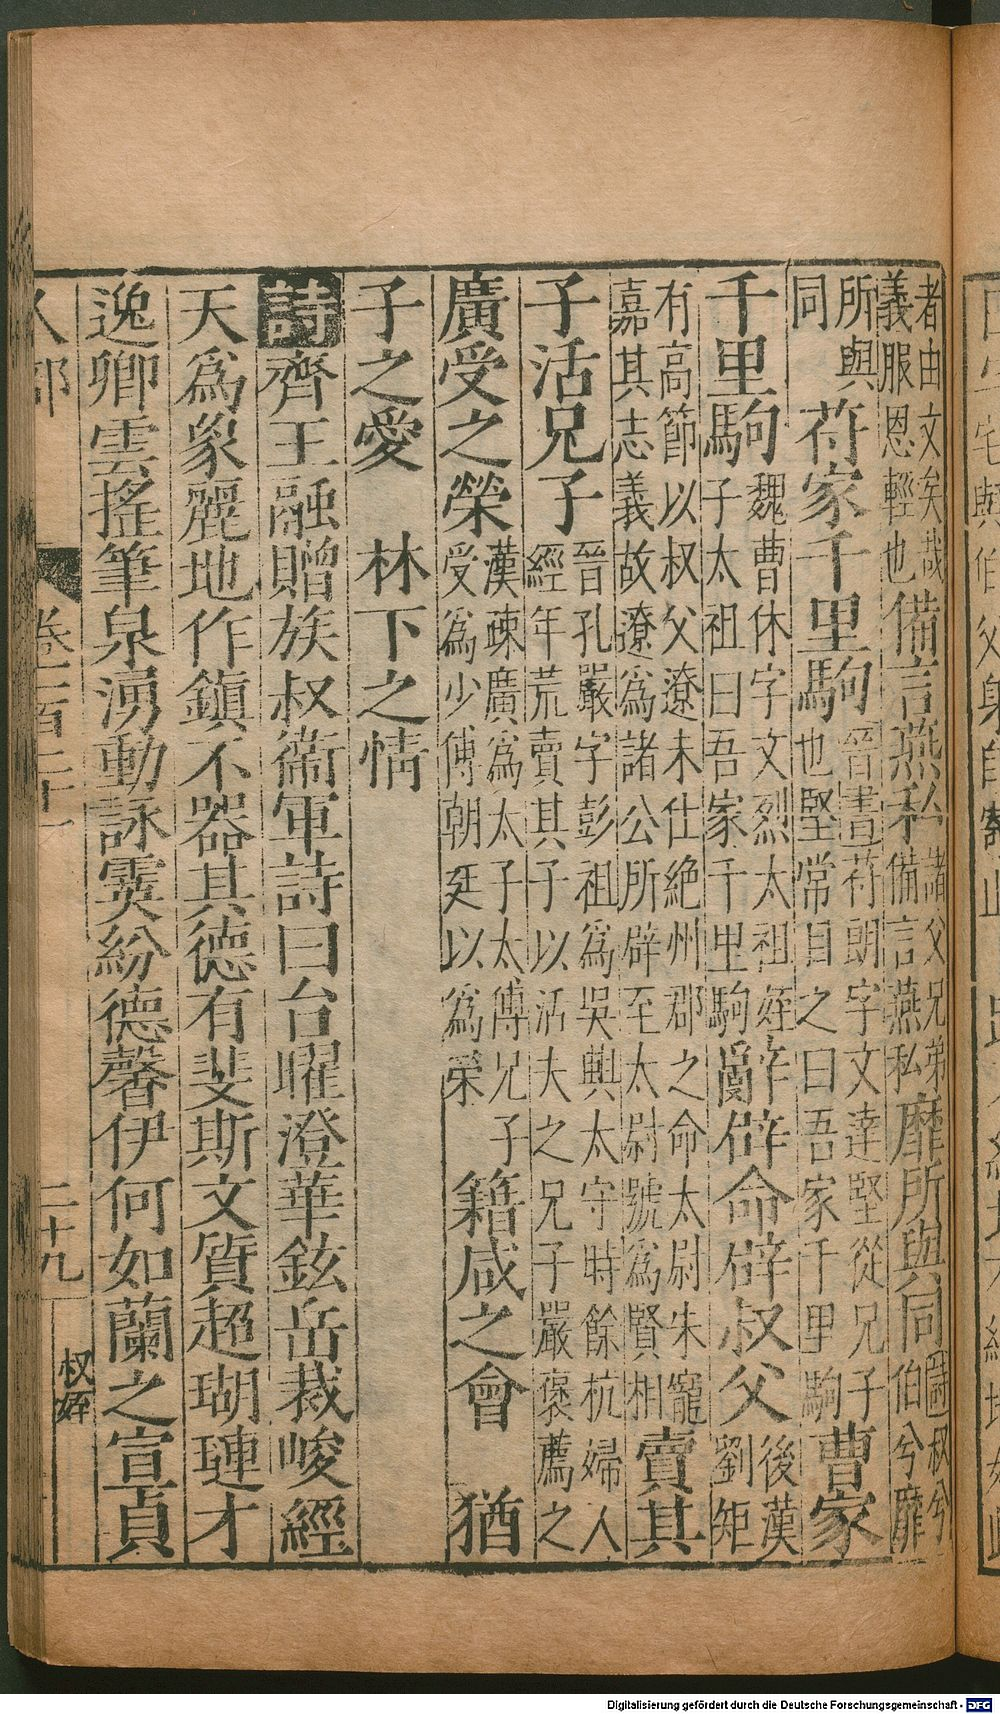 者由文矣哉
義服恩輕也
備言燕私
諸父兄弟
備言燕私
靡所與同
詩叔兮
伯兮靡
所與
同
苻家千里駒
晉書苻朗字文達堅從兄子
也堅常目之曰吾家千里駒
曹家
千里駒
魏曹休字文烈太祖姪
子太祖曰吾家千里駒
辭辟命
辟叔父
後漢
劉矩
有高節以叔父遼未仕絶州郡之命太尉朱寵
嘉其志義故遼爲諸公所辟至太尉號爲賢相
賣其
子活兄子
晉孔嚴字彭祖爲吳興太守時餘杭婦人
經年荒賣其子以活夫之兄子嚴褒薦之
廣受之榮
漢疎廣爲太子太傅兄子
受爲少傅朝廷以爲榮
籍咸之會
猶
子之愛　林下之情
詩齊王融贈族叔衞軍詩曰台曜澄華鉉岳裁峻經
天爲象麗地作鎮不器其德有斐斯文質超瑚璉才
逸卿雲搖筆泉湧動詠雰紛德馨伊何如蘭之宣貞
人部
卷二百二十一
二十九
叔姪
Digitalisierung gefördert durch die Deutsche Forschungsgemeinschaft - DFG